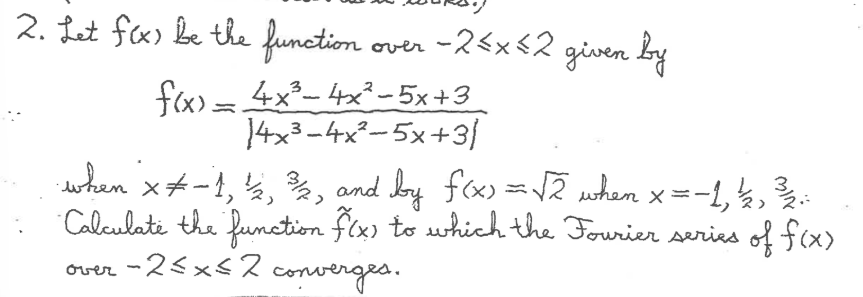 2. Let f(x) be the function over -2≤x≤2 given by
f(x) = 4x³-4x²-5x+3 / |4x³-4x²-5x+3|
when x≠-1, ½, 3/2, and by f(x) = √2 when x=-1, ½, 3/2.
Calculate the function f̃(x) to which the Fourier series of f(x)
over -2≤x≤2 converges.